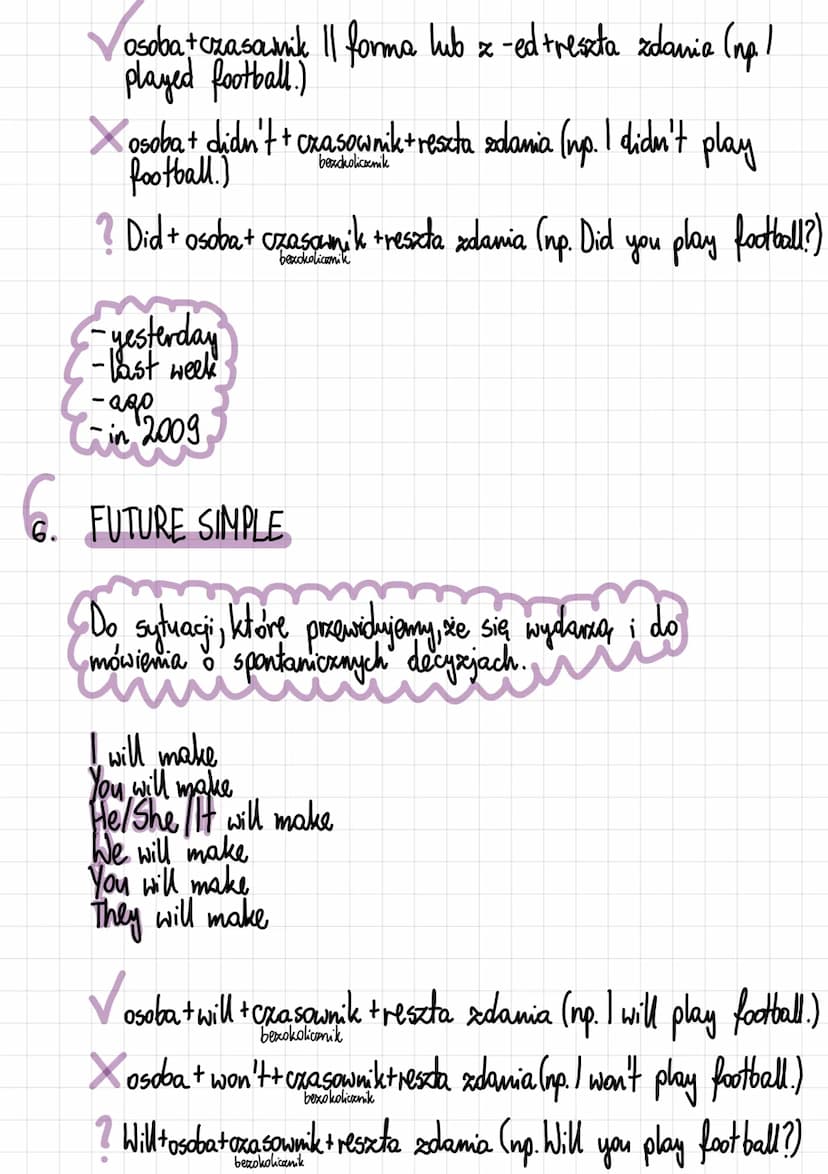 osoba+czasownik II forma lub z -ed+reszta zdania (np. I
played football.)
osoba+ didn't+ czasownik+reszta zdania (np. I didn't play
bezokolicznik
football.)
? Did+ osoba+ czasownik +reszta zdania (np. Did you play football?)
bezokolicznik
- yesterday
- last week
- ago
- in 2009
6. FUTURE SIMPLE
Do sytuacji, które przewidujemy, że się wydarzą i do
mówienia o spontanicznych decyzjach.
I will make
You will make
He/She/It will make
We will make
You will make
They will make
osoba+will+czasownik+reszta zdania (np. I will play football.)
bezokolicznik
osoba+ won't+czasownik+reszta zdania (np. I won't play football.)
bezokolicznik
? Will+osoba+czasownik+reszta zdania (np. Will you play football?)
bezokolicznik